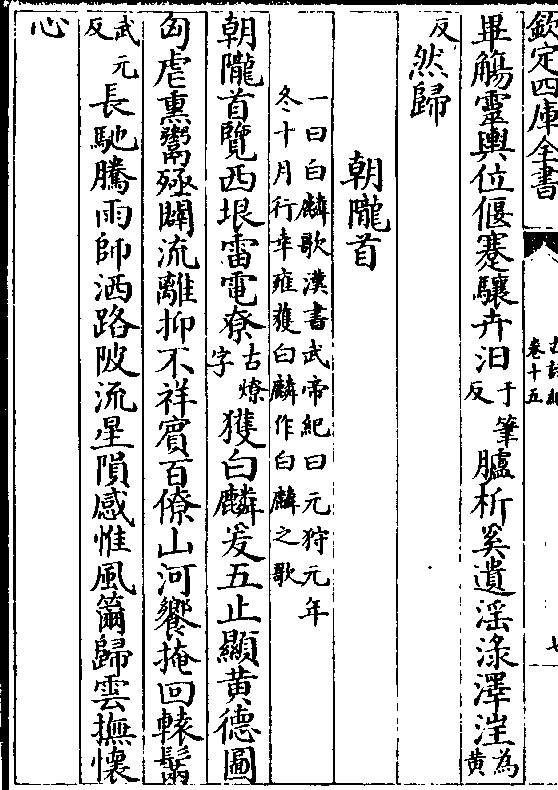 欽定四庫全書
卷十五
七
畢觴靈輿位偃蹇驤卉汩于筆反臚析奚遺淫淥澤汪為黃
反然歸
朝隴首
一曰白麟歌漢書武帝紀曰元狩元年
冬十月行幸雍獲白麟作白麟之歌
朝隴首覽西垠雷電尞古燎字獲白麟爰五止顯黃德圖
匈虐熏鬻殛闢流離抑不祥賓百僚山河饗掩回轅鬗
武元反長馳騰雨師洒路陂流星隕感惟風籋歸雲撫懷
心